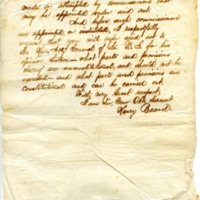 made or attempted by commissioners that
may be appointed under said act
And before such commissioners
are appointed or constituted, I respectfully
request that you will refer said act to
the Hon. Atty General of the U.S. for his
opinion thereon what parts and provisions
thereof are unconstitutional and should not be
executed and what parts and provisions are
constitutional and can be carried out
With very great respect,
I am Sir Your Obt Servant
Henry Beard